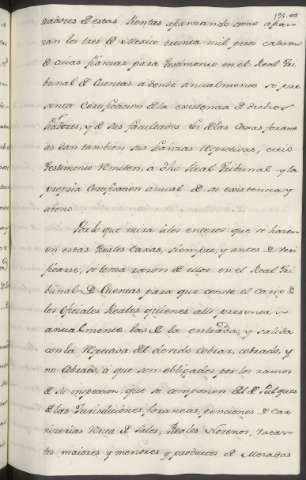 nadores de estas Rentas afianzando como afian-
zan los tres de Mexico treinta mil pesos cada uno
de cuias fianzas para Testimonio en el Real Tri
bunal de Cuentas a donde anualmente se pre
senta Certificacion de la existencia de dichos
fiadores, y de sus facultades los de las Caxas foraneas
dan tambien sus fianzas respectivas, cuio
Testimonio remiten a dicho Real Tribunal y la
propia Certificacion anual de su existencia y
abono
Por lo que mira a los enteros que se hacen
en estas Reales Caxas, siempre, y antes de veri
ficarse, se toma razon de ellos en el Real Tri
bunal de Cuentas para que conste el cargo de
los Oficiales Reales quienes alli presentan
anualmente las de la entrada, y salida
con la respuesta del devido cobrar, cobrado, y
no cobrado, a que son obligados por los ramos
de su inspeccion que se componen del de Pulques
de las Jurisdicciones foraneas, pensiones de Car
nicerias Renta de Sales, Reales Novenos, vacan
tes maiores y menores y productos de Mesadas